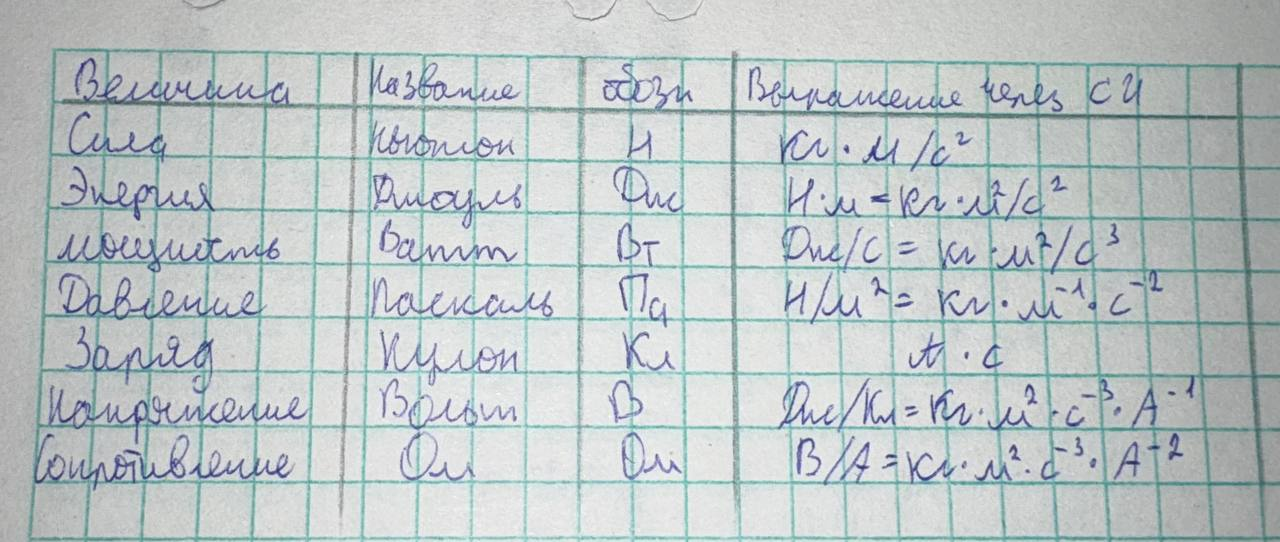 Величина Название обозн Выражение через СИ
Сила Ньютон Н кг·м/с²
Энергия Джоуль Дж Н·м=кг·м²/с²
мощность Ватт Вт Дж/с = кг·м²/с³
Давление Паскаль Па Н/м² = кг·м⁻¹·с⁻²
Заряд Кулон Кл А·с
Напряжение Вольт В Дж/Кл=кг·м²·с⁻³·А⁻¹
Сопротивление Ом Ом В/А=кг·м²·с⁻³·А⁻²